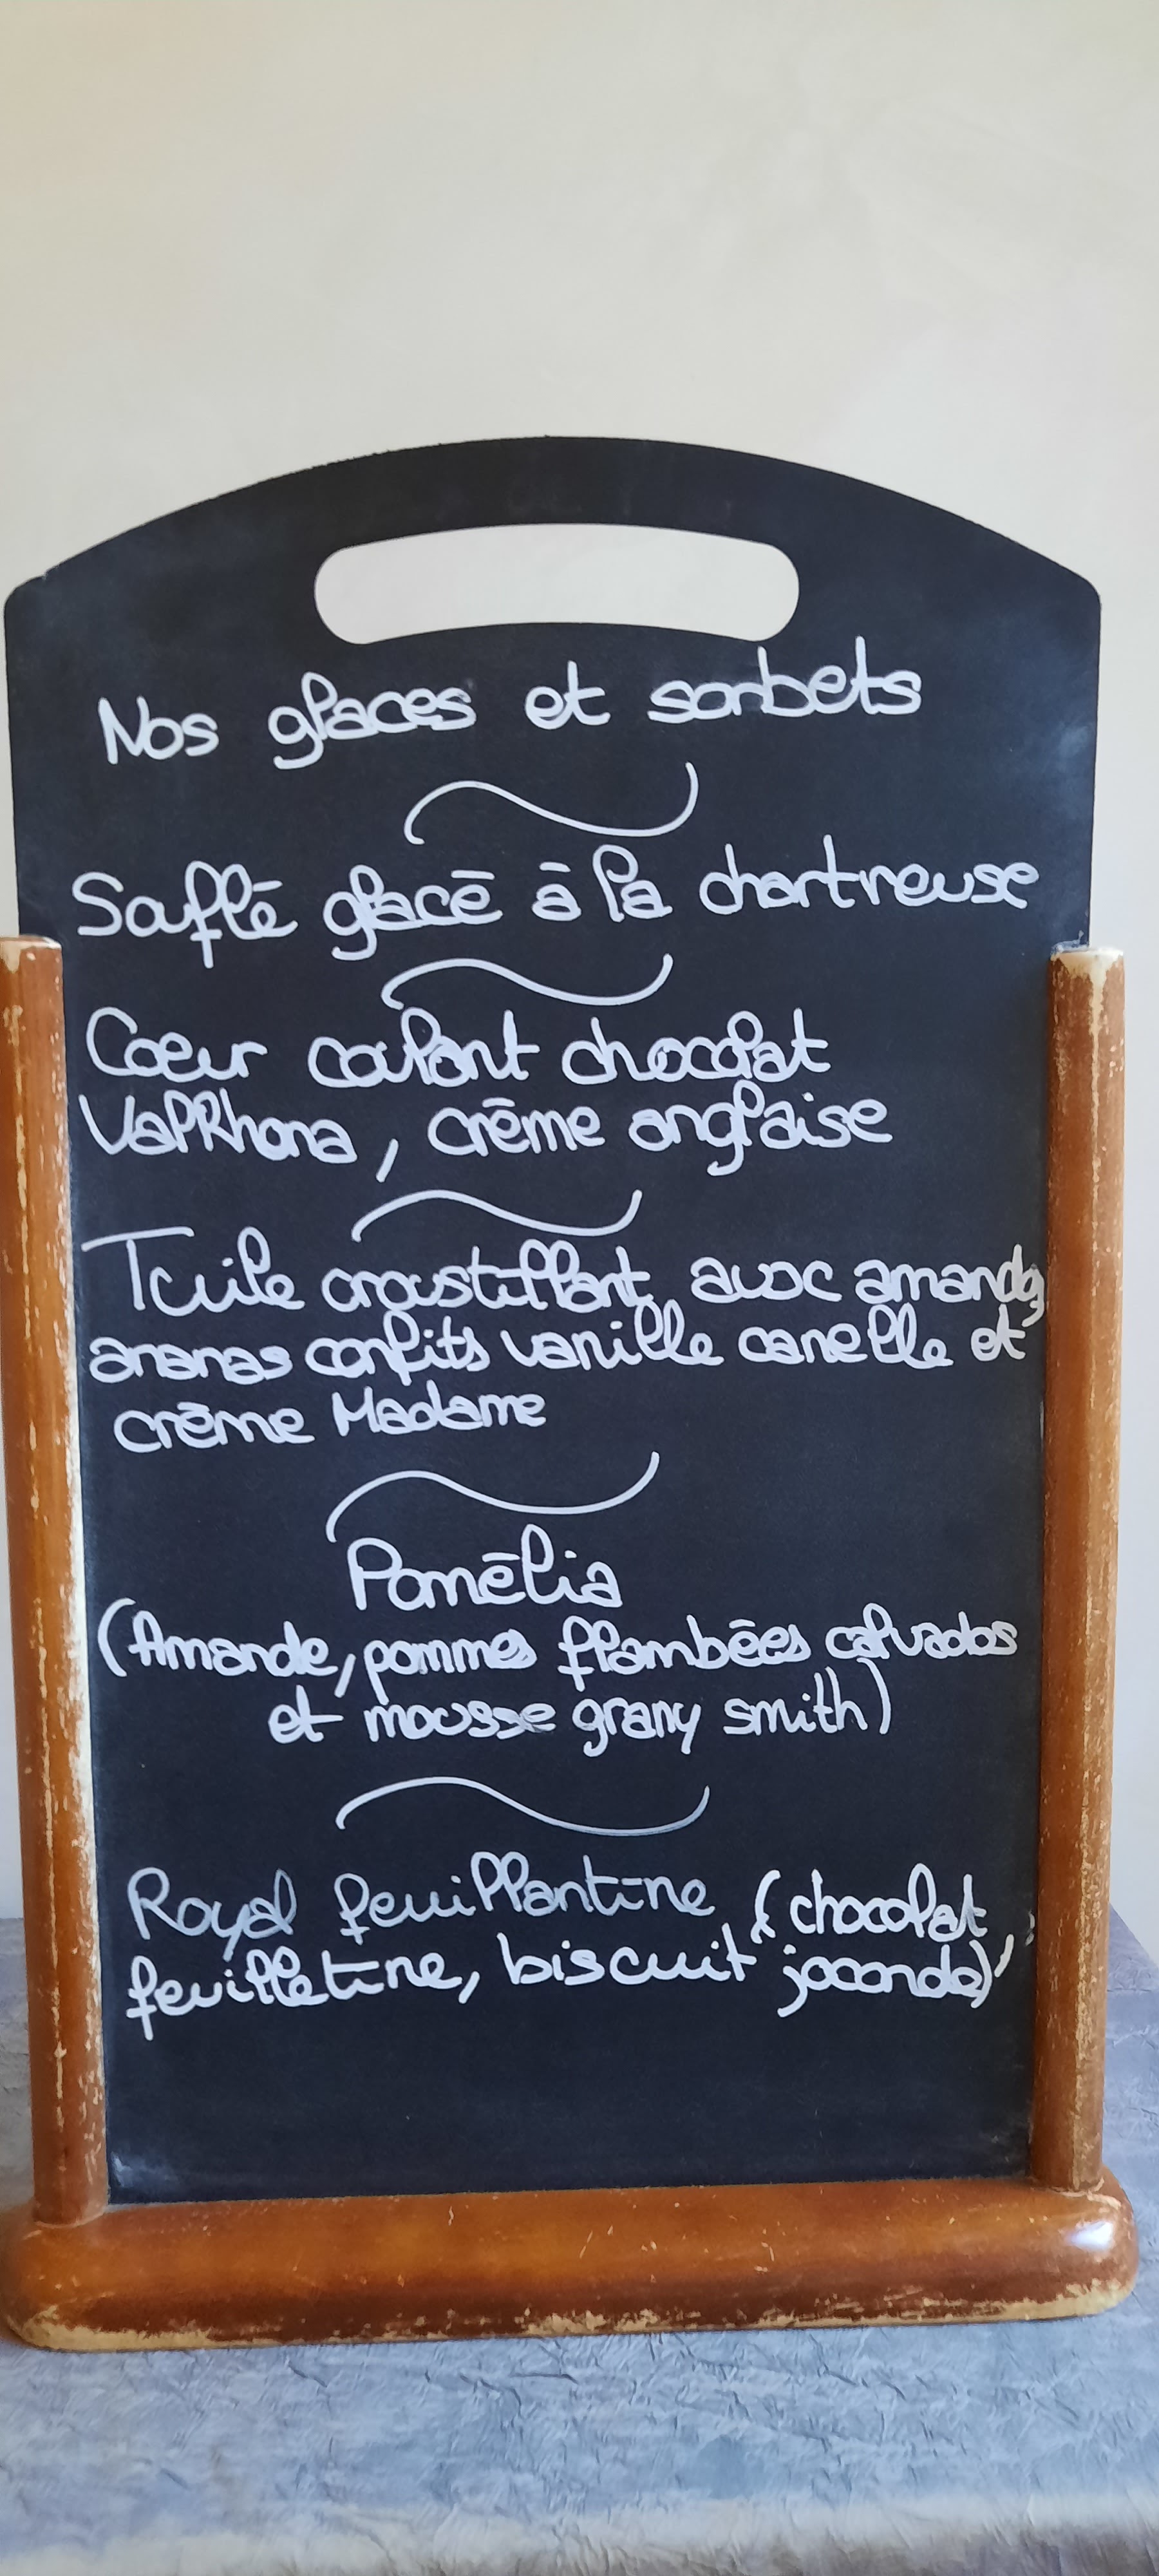 Nos glaces et sorbets
Souflé glacé à la chartreuse
Coeur coulant chocolat
Valrhona, crème anglaise
Tuile croustillant avec amande,
ananas confits vanille canelle et
crème Madame
Pomélia
(Amande, pommes flambées calvados
et mousse grany smith)
Royal feuillantine (chocolat
feuilletine, biscuit "joconde)"